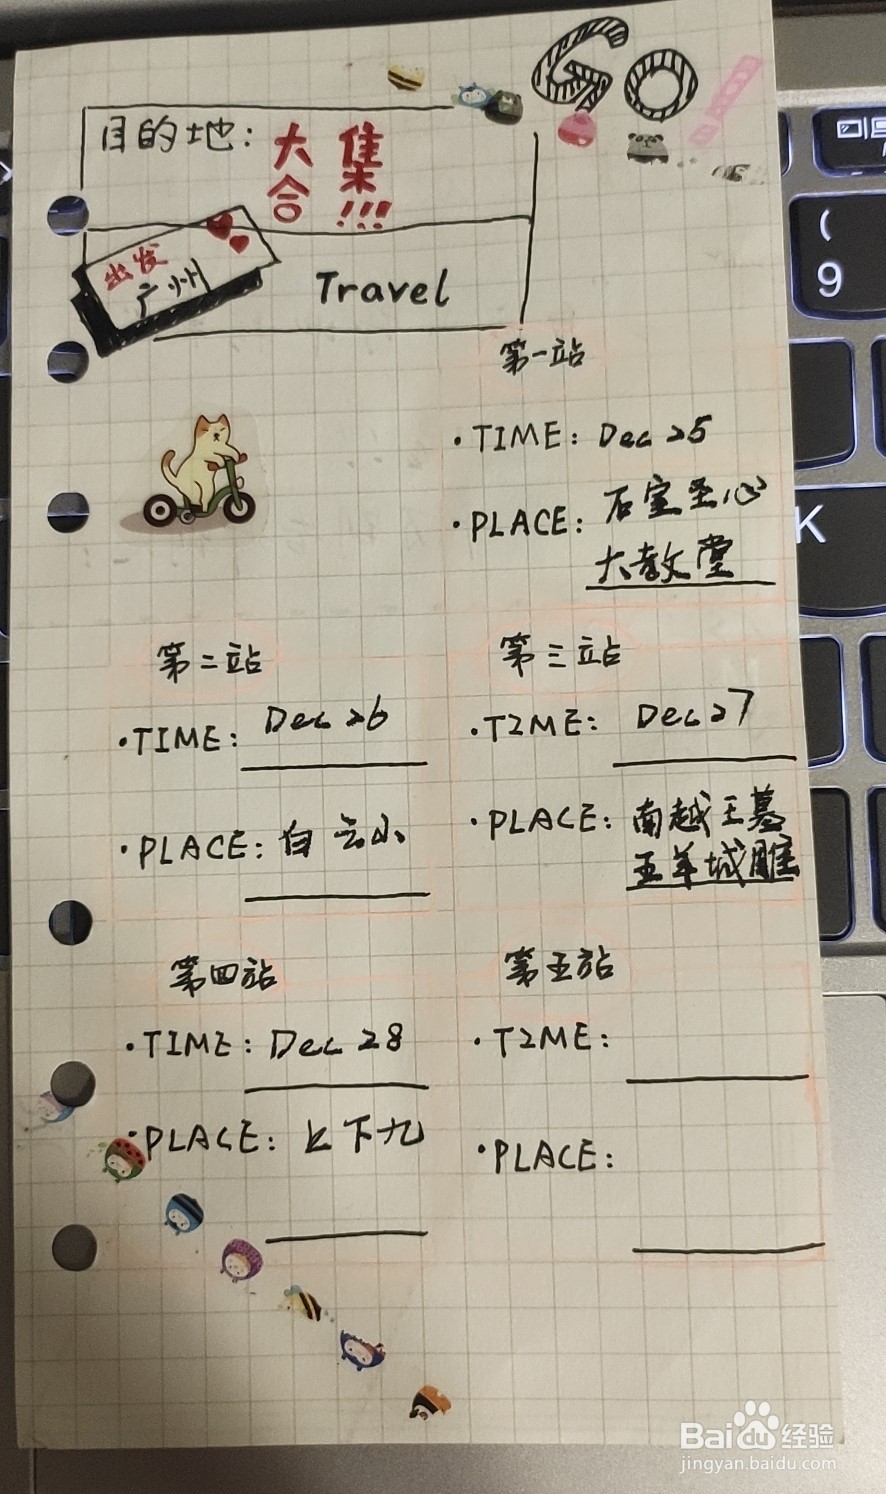 GO!
目的地：大集合!!!
出发
广州
Travel
第一站
·TIME: Dec 25
·PLACE: 石室圣心
大教堂
第二站
·TIME: Dec 26
·PLACE: 白云山
第三站
·TIME: Dec 27
·PLACE: 南越王墓
五羊城雕
第四站
·TIME: Dec 28
·PLACE: 上下九
第五站
·TIME:
·PLACE:
(
9
K
Baidu经验
jingyan.baidu.com